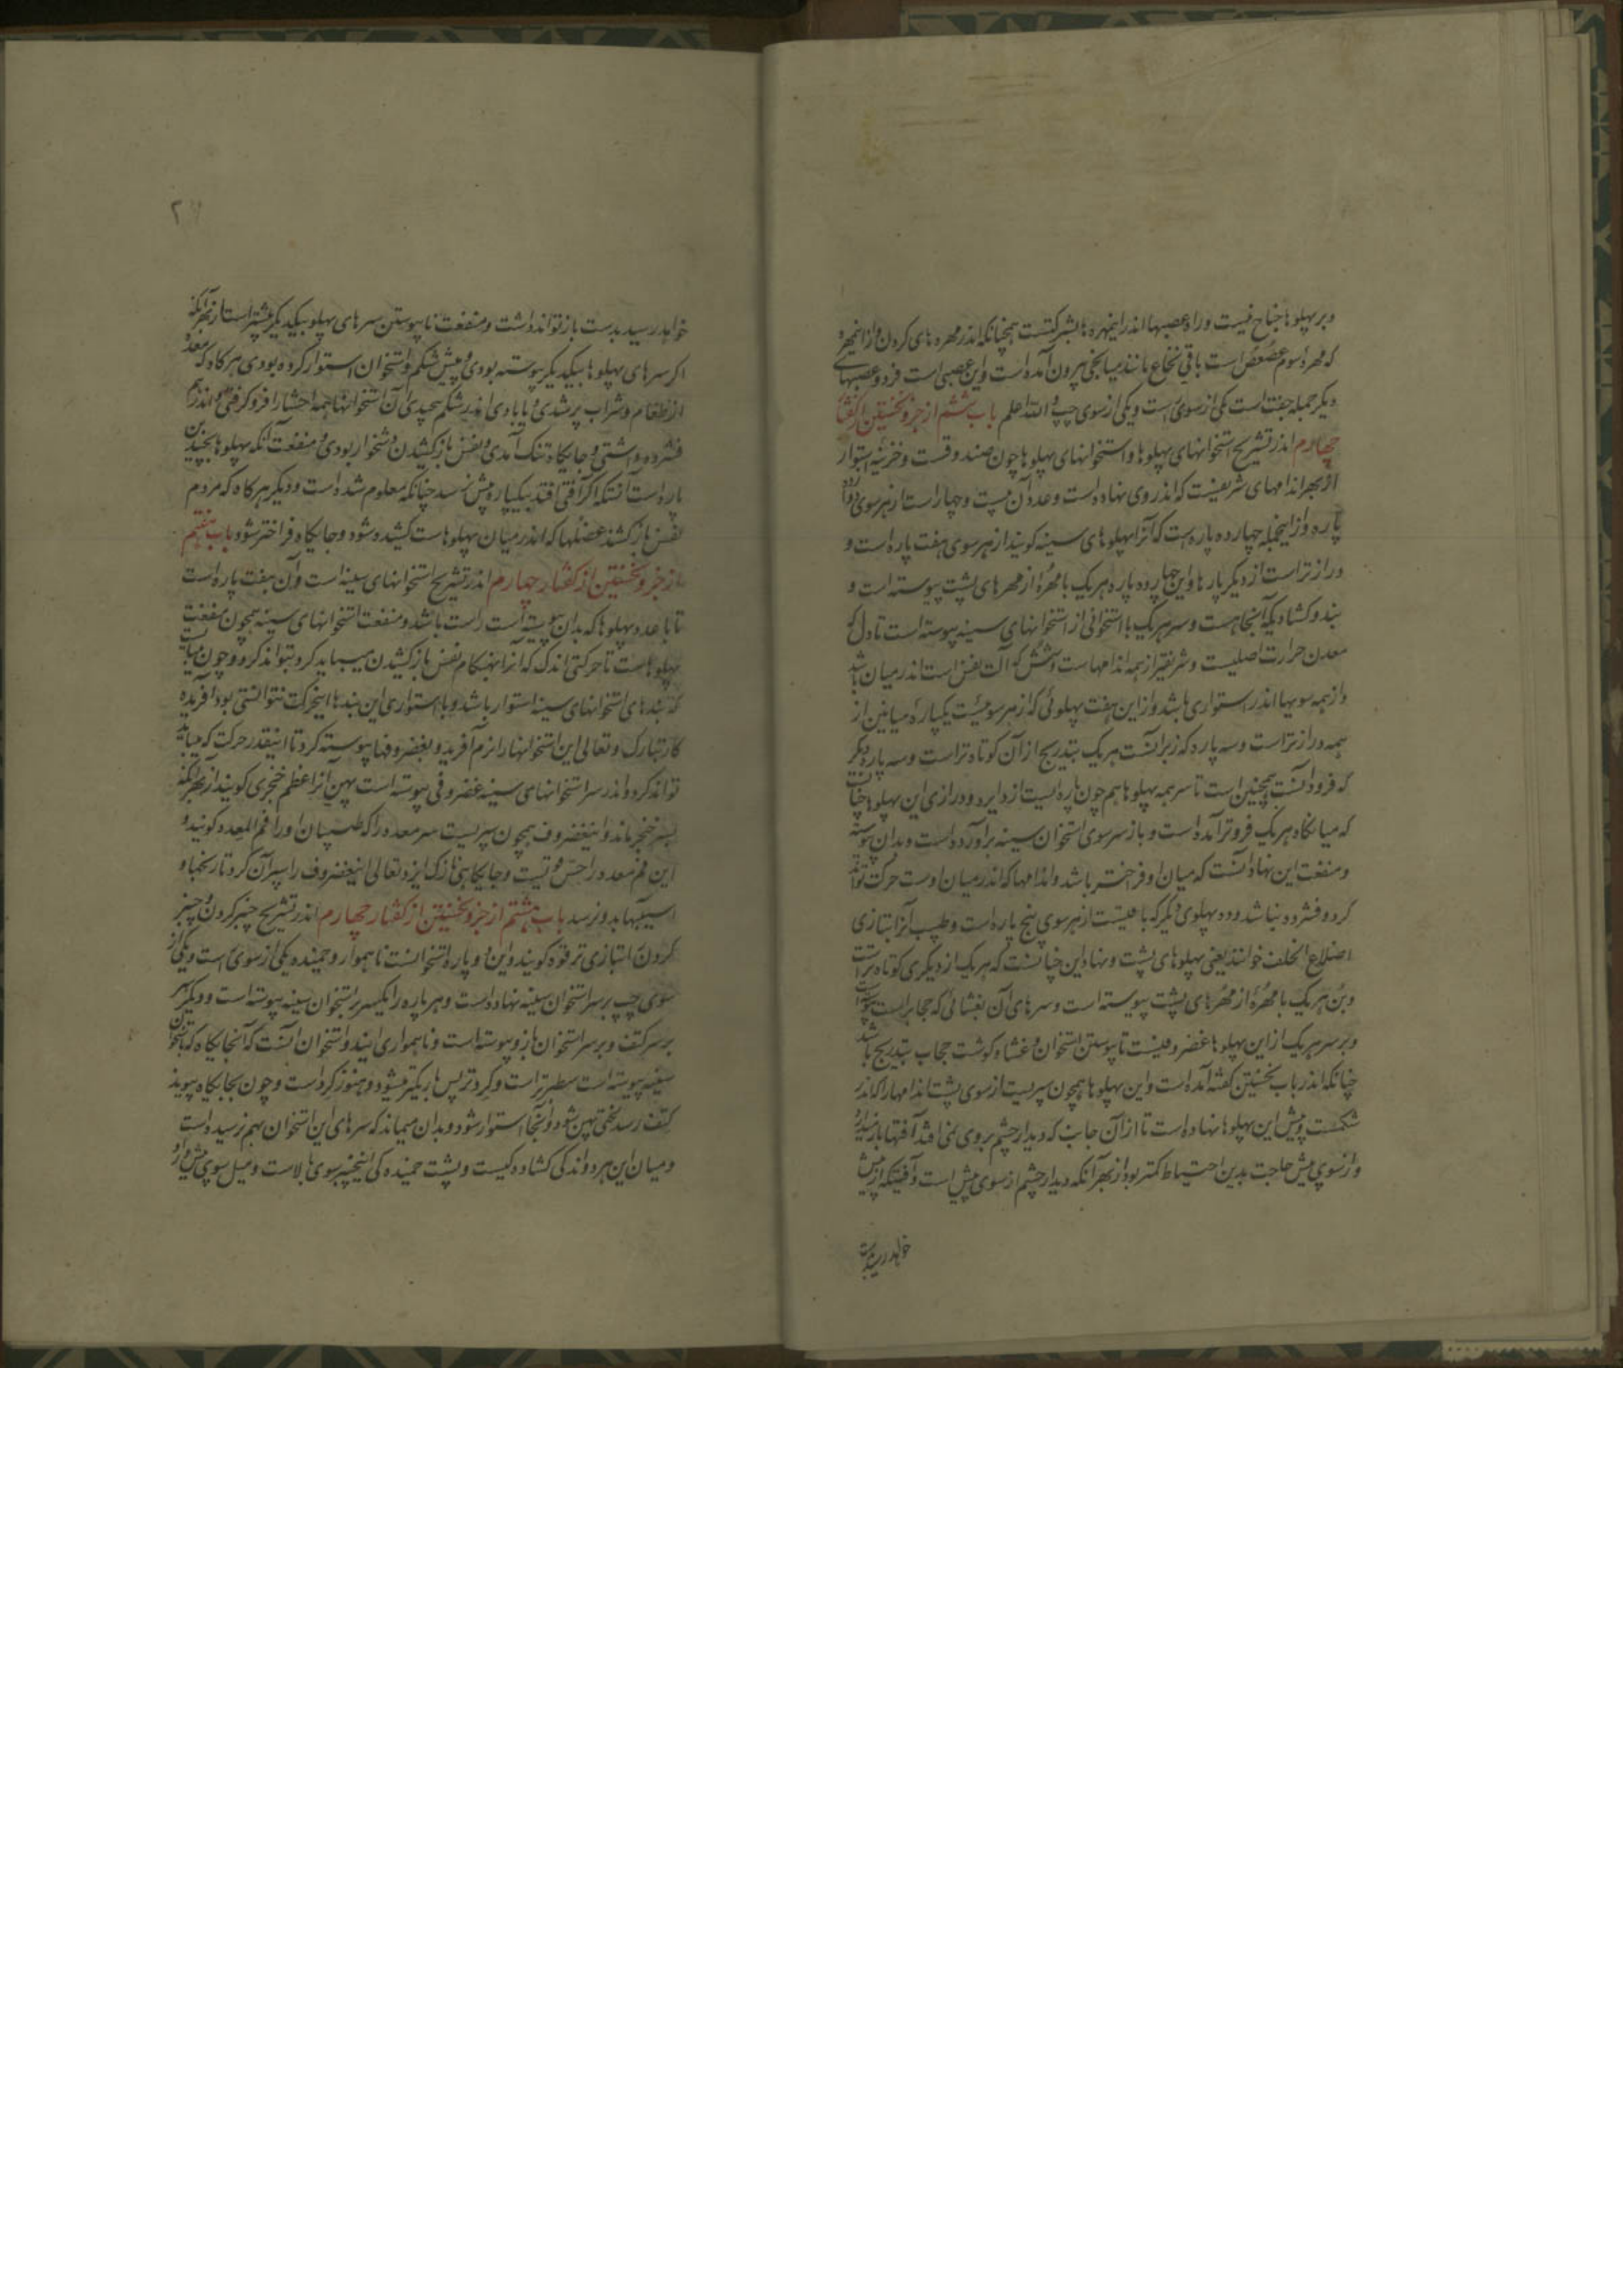 و بر پهلوها جناح نیست و راه عصبها اندر اینمهره ها بشرکتست همچنانکه اندر مهره های کردن و از اینمهره
که مهرۀ سوم عصعص است باقی نخاع مانند میانجی بیرون آمده است و این عصبی است فرد و عصبهای
دیکر جمله جفت است یکی از سوی راست و یکی از سوی چپ و الله اعلم باب ششم از جزو نخستین از کفتار
چهارم اندر تشریح استخوانهای پهلوها و استخوانهای پهلوها چون صندوقست و خزینه استوار
از بهر اندامهای شریفست که اندروی نهاده است و عدد آن بیست و چهار است از هر سوی دوازده
پاره و از اینجمله چهارده پاره است که آنرا پهلوهای سینه کویند از هر سوی هفت پاره است و
درازتر است از دیکر پارها و این چهارده پاره هر یک با مهرۀ از مهرهای پشت پیوسته است و
بند و کشادیکه آنجا هست و سر هر یک با استخوانی از استخوانهای سینه پیوسته است تا دل که
معدن حرارت اصلیست و شریفتر از همه اندامهاست و شش که آلت نفس است اندر میان باشد
و از همه سویها اندر استواری باشد و از این هفت پهلوئی که از هر سوئیست یکپاره میانین از
همه درازتر است و سه پاره که زبر آنست هر یک بتدریج از آن کوتاه تر است و سه پاره دیکر
که فرود آنست همچنین است تا سر همه پهلوها هم چون پاره ایست از دایره و درازی این پهلوها چنانست
که میانکاه هر یک فروتر آمده است و باز سر سوی استخوان سینه برآورده است و بدان پیوسته
و منفعت این نهاد آنست که میان او فراختر باشد و اندامها که اندر میان اوست حرکت تواند
کرد و فشرده نباشد و ده پهلوی دیکر که باقیست از هر سوی پنج پاره است و طبیب آنرا بتازی
اضلاع الخلف خوانند یعنی پهلوهای پشت و نهاد این چنانست که هر یک از دیکری کوتاه تر است
و بن هر یک با مهرۀ از مهرهای پشت پیوسته است و سرهای آن بغشائی که حجابراست پیوسته است
و بر سر هر یک از این پهلوها غضروفیست تا پیوستن استخوان و غشاء و کوشت حجاب بتدریج باشد
چنانکه اندر باب نخستین کفته آمده است و این پهلوها همچون سپریست از سوی پشت اندامها را که اندر
شکمست و بیش این پهلوها نهاده است تا از آن جانب که دیدار چشم بروی نمی افتد آفتها باز میدارد
و از سوی پیش حاجت بدین احتیاط کمتر بود از بهر آنکه دیدار چشم از سوی پیش است و آفتیکه از پیش
خواهد رسید بدست
خواهد رسید بدست باز تواند داشت و منفعت ناپیوستن سرهای پهلو بیکدیکر بیشتر است از بهر آنکه
اکر سرهای پهلوها بیکدیکر پیوسته بودی و پیش شکم و استخوان استوار کرده بودی هر کاه که معده
از طعام و شراب پر شدی و یا بادی اندر شکم پیچیدی آن استخوانها همه احشا را فرو کرفتی و اندر هم
فشرده داشتی و جایکاه تنک آمدی و نفس باز کشیدن دشخوار بودی و منفعت آنکه پهلوها بچندین
پاره است آنستکه اکر آفتی افتد بیکپاره بیش نرسد چنانکه معلوم شده است و دیکر هر کاه که مردم
نفس باز کشند عضلها که اندر میان پهلوهاست کشیده شود و جایکاه فراختر شود باب هفتم
از جزو نخستین از کفتار چهارم اندر تشریح استخوانهای سینه است و آن هفت پاره است
تا با عدد پهلوها که بدان پیوسته است راست باشد و منفعت استخوانهای سینه همچون منفعت
پهلوهاست تا حرکتی اندک که آنرا بهنکام نفس باز کشیدن میباید کرد بتواند کرد و چون میبایست
که بندهای استخوانهای سینه استوار باشد و با استواری این بندها اینحرکت نتوانستی بود آفریده
کار تبارک و تعالی این استخوانها را نرم آفرید و بغضروفها پیوسته کرد تا اینقدر حرکت که میباید
تواند کرد و اندر سر استخوانهای سینه غضروفی پیوسته است پهن آنرا عظم خنجری کویند از بهر آنکه
بسر خنجر ماند و اینغضروف همچون سپریست سر معده را که طبیبان او را فم المعده کویند و
این فم معده را حس قویست و جایکاهی نازک ایزد تعالی اینغضروف را سپر آن کرد تا رنجها و
آسیبها بدو نرسد باب هشتم از جزو نخستین از کفتار چهارم اندر تشریح چنبر کردن و چنبر
کردن را بتازی ترقوه کویند و این دو پاره استخوانست ناهموار و خمیده یکی از سوی راست و یکی از
سوی چپ بر سر استخوان سینه نهاده است و هر پاره را یکسر بر استخوان سینه پیوسته است و دیکر سر
بر سر کتف و بر سر استخوان بازو پیوسته است و ناهمواری ایندو استخوان آنست که آنجایکاه که باستخوان
سینه پیوسته است سطبرتر است و کردتر پس باریکتر میشود و هنوز کرد است و چون بجایکاه پیوند
کتف رسد لختی پهن شود و آنجا استوار شود و بدان میماند که سرهای این استخوان بهم نرسیده است
و میان این هر دو اندکی کشادکیست و پشت خمیده کی اینچنبر سوی بالاست و میل سوی پیش دارد